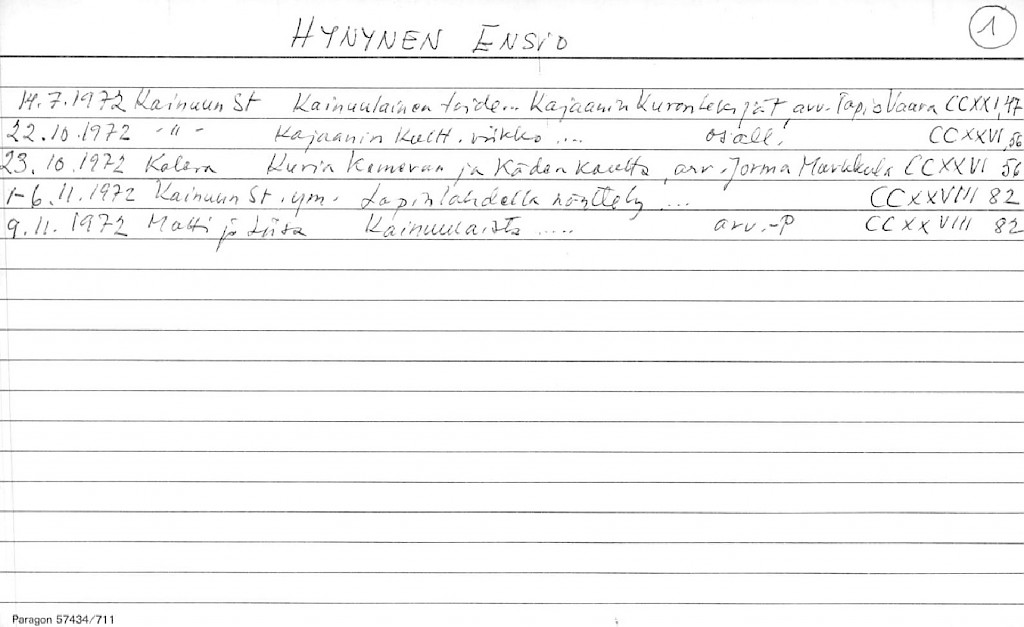 HYNYNEN ENSIO
1
14.7.1972 Kainuun St Kainuulainen taide... Kajaanin Kuvantekijät, arv. Tapio Vaara CCXXI,47
22.10.1972 -"- Kajaanin Kultt. viikko ... osall. CCXXVI,56
23.10.1972 Kaleva Kuvia Kameran ja Käden kautta, arv. Jorma Markkula CCXXVI 56
1-6.11.1972 Kainuun St. ym. Lapinlahdella näyttely ... CCXXVIII 82
9.11.1972 Matti ja Liisa Kainuulaista ..... arv.-P CCXXVIII 82
Paragon 57434/711